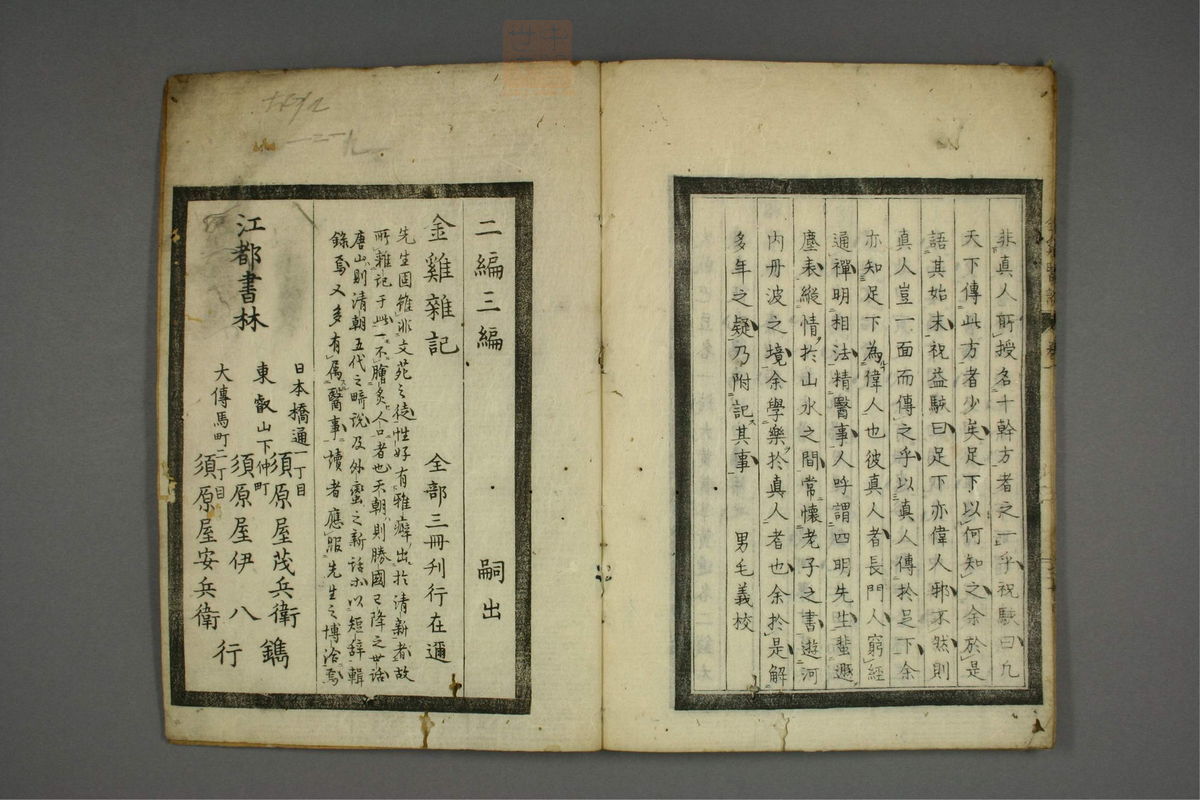 非真人所授名十幹方者之一乎祝駃曰九
天下傳此方者少矣足下以何知之余於是
語其始末祝益駃曰足下亦偉人邪不然則
真人豈一面而傳之乎以真人傳於足下余
亦知足下為偉人也彼真人者長門人窮經
通禪明相法精醫事人呼謂四明先生蜚遯
塵表縱情於山水之間常懷老子之書遊河
内丹波之境余學樂於真人者也余於是解
多年之疑乃附記其事　男毛義校
二編三編　嗣出
金雞雜記　全部三冊刊行在邇
先生固雖非文苑之徒性好有雅癖出於清新者故
所雜記于此一不膾炙人口者也夭朝則勝國已降之世話
唐山則清朝五代之畸説及外蠻之新話尓以短辞輯
錄焉又多有属醫事讀者應服先生之博洽焉
江都書林
日本橋通一丁目　須原屋茂兵衛　鐫
東叡山下仲町　須原屋伊八
大傳馬町二丁目　須原屋安兵衛　行